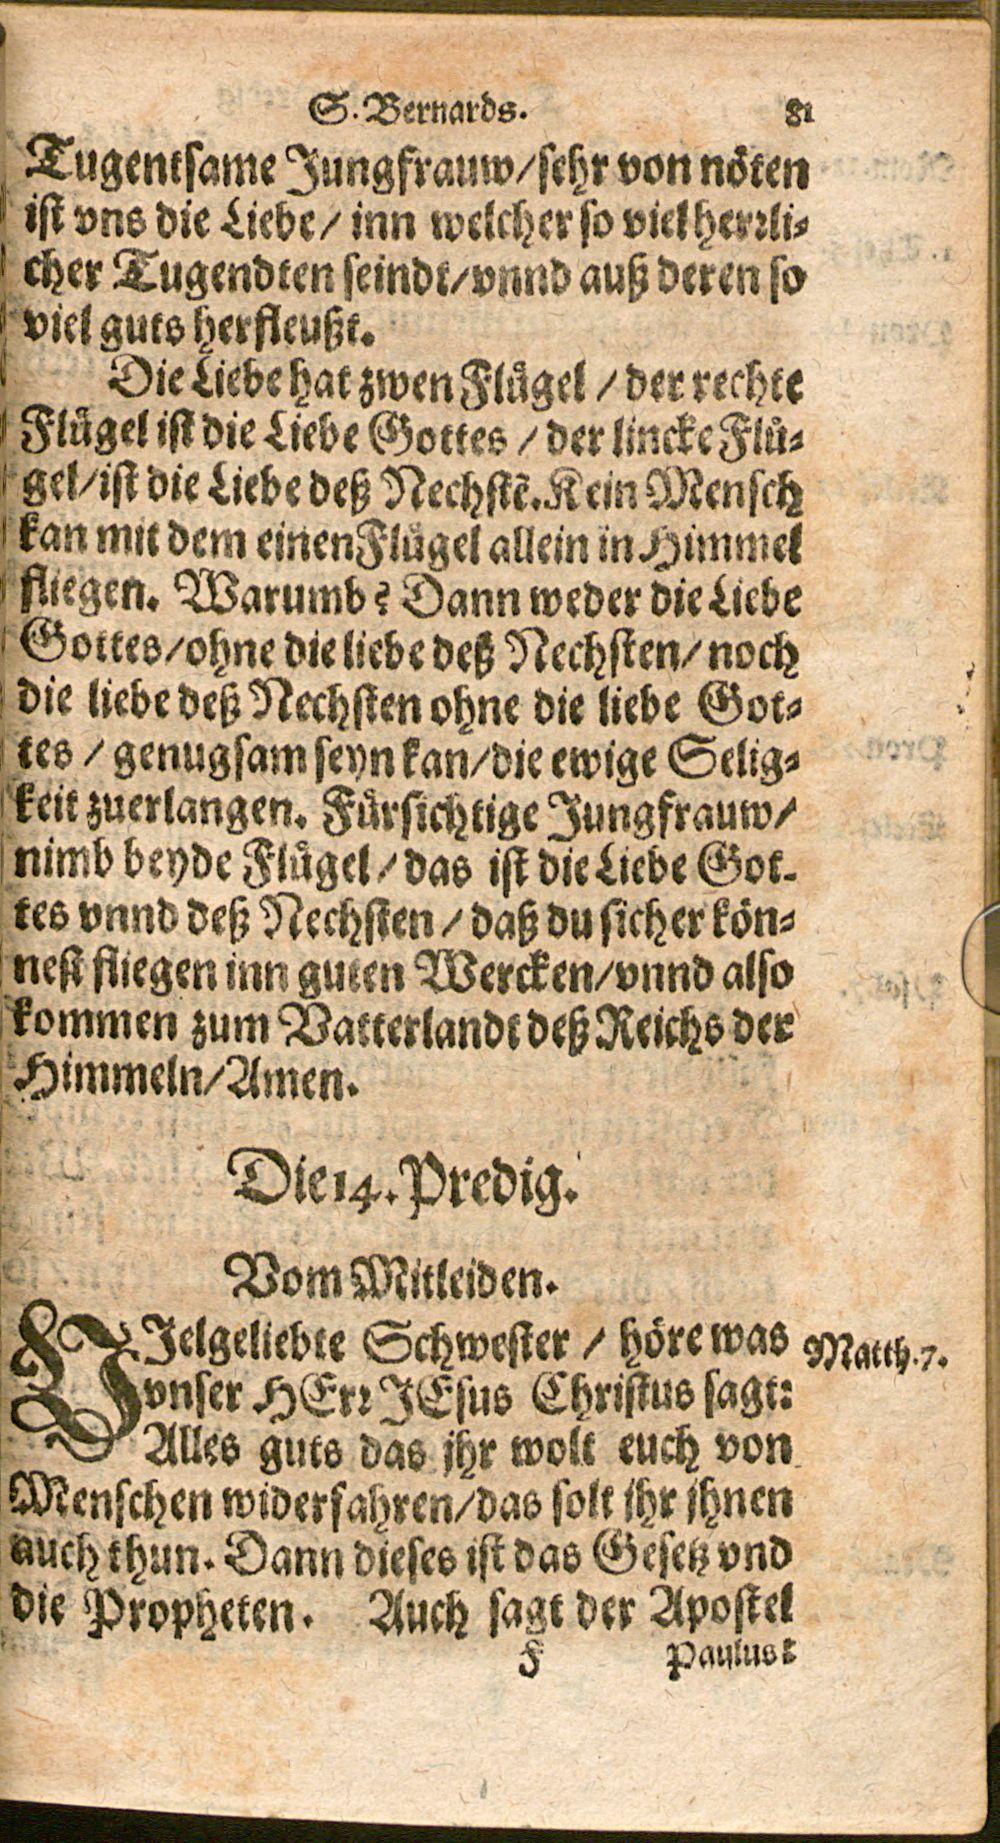 S. Bernards. 81
Tugentsame Jungfrauw/sehr von nöten
ist vns die Liebe/ inn welcher so viel herꝛli⸗
cher Tugendten seindt/vnnd auß deren so
viel guts herfleußt.
Die Liebe hat zwen Flügel / der rechte
Flügel ist die Liebe Gottes / der lincke Flü⸗
gel/ist die Liebe deß Nechstẽ. Kein Mensch
kan mit dem einen Flügel allein in Himmel
fliegen. Warumb? Dann weder die Liebe
Gottes/ohne die liebe deß Nechsten/ noch
die liebe deß Nechsten ohne die liebe Got⸗
tes / genugsam seyn kan/die ewige Selig⸗
keit zuerlangen. Fürsichtige Jungfrauw/
nimb beyde Flügel/ das ist die Liebe Got-
tes vnnd deß Nechsten / daß du sicher kön⸗
nest fliegen inn guten Wercken/vnnd also
kommen zum Vatterlandt deß Reichs der
Himmeln/Amen.
Die 14. Predig.
Vom Mitleiden.
VJelgeliebte Schwester / höre was Matth. 7.
vnser HErꝛ JEsus Christus sagt:
Alles guts das jhr wolt euch von
Menschen widerfahren/das solt jhr jhnen
auch thun. Dann dieses ist das Gesetz vnd
die Propheten. Auch sagt der Apostel
F Paulus: